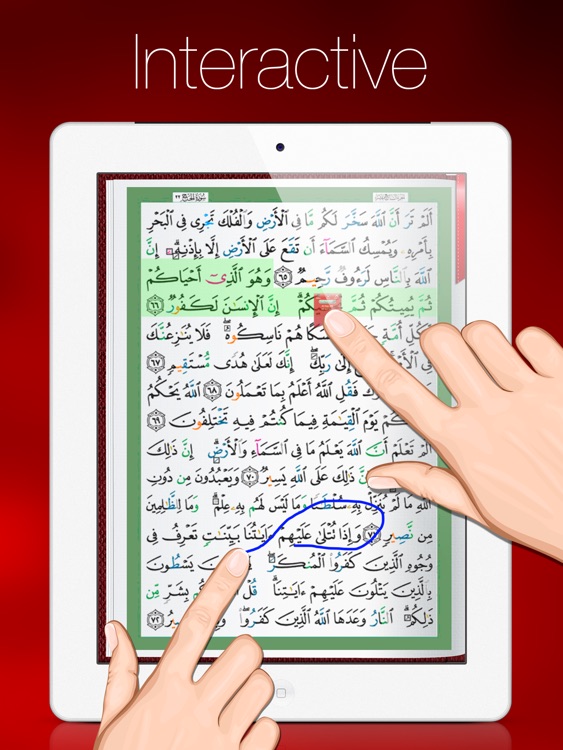 Interactive
سُورَةُ الحَجِّ ٢٢
أَلَمْ تَرَ أَنَّ ٱللَّهَ سَخَّرَ لَكُم مَّا فِى ٱلْأَرْضِ وَٱلْفُلْكَ تَجْرِى فِى ٱلْبَحْرِ
بِأَمْرِهِۦ وَيُمْسِكُ ٱلسَّمَآءَ أَن تَقَعَ عَلَى ٱلْأَرْضِ إِلَّا بِإِذْنِهِۦٓ ۗ إِنَّ
ٱللَّهَ بِٱلنَّاسِ لَرَءُوفٌ رَّحِيمٌ ٦٥ وَهُوَ ٱلَّذِىٓ أَحْيَاكُمْ
ثُمَّ يُمِيتُكُمْ ثُمَّ ۗ إِنَّ ٱلْإِنسَٰنَ لَكَفُورٌ ٦٦
لِّكُلِّ أُمَّةٍ هُمْ نَاسِكُوهُ ۖ فَلَا يُنَٰزِعُنَّكَ
فِى إِلَىٰ رَبِّكَ ۖ إِنَّكَ لَعَلَىٰ هُدًى مُّسْتَقِيمٍ ٦٧
فَقُلِ ٱللَّهُ أَعْلَمُ بِمَا تَعْمَلُونَ ٦٨ ٱللَّهُ يَحْكُمُ
يَوْمَ ٱلْقِيَٰمَةِ فِيمَا كُنتُمْ فِيهِ تَخْتَلِفُونَ ٦٩
أَلَمْ تَعْلَمْ أَنَّ ٱللَّهَ يَعْلَمُ مَا فِى ٱلسَّمَآءِ وَٱلْأَرْضِ ۗ إِنَّ ذَٰلِكَ
إِنَّ ذَٰلِكَ عَلَى ٱللَّهِ يَسِيرٌ ٧٠ وَيَعْبُدُونَ مِن دُونِ
ٱللَّهِ مَا لَمْ يُنَزِّلْ بِهِۦ سُلْطَٰنًا وَمَا لَيْسَ لَهُم بِهِۦ عِلْمٌ ۗ وَمَا لِلظَّٰلِمِينَ
مِن نَّصِيرٍ ٧١ وَإِذَا تُتْلَىٰ عَلَيْهِمْ ءَايَٰتُنَا بَيِّنَٰتٍ تَعْرِفُ فِى
وُجُوهِ ٱلَّذِينَ كَفَرُوا۟ ٱلْمُنكَرَ ۖ يَسْطُونَ
بِٱلَّذِينَ يَتْلُونَ عَلَيْهِمْ ءَايَٰتِنَا ۗ قُلْ بِشَرٍّ مِّن
ذَٰلِكُمُ ۗ ٱلنَّارُ وَعَدَهَا ٱللَّهُ ٱلَّذِينَ كَفَرُوا۟ ۖ ٧٢